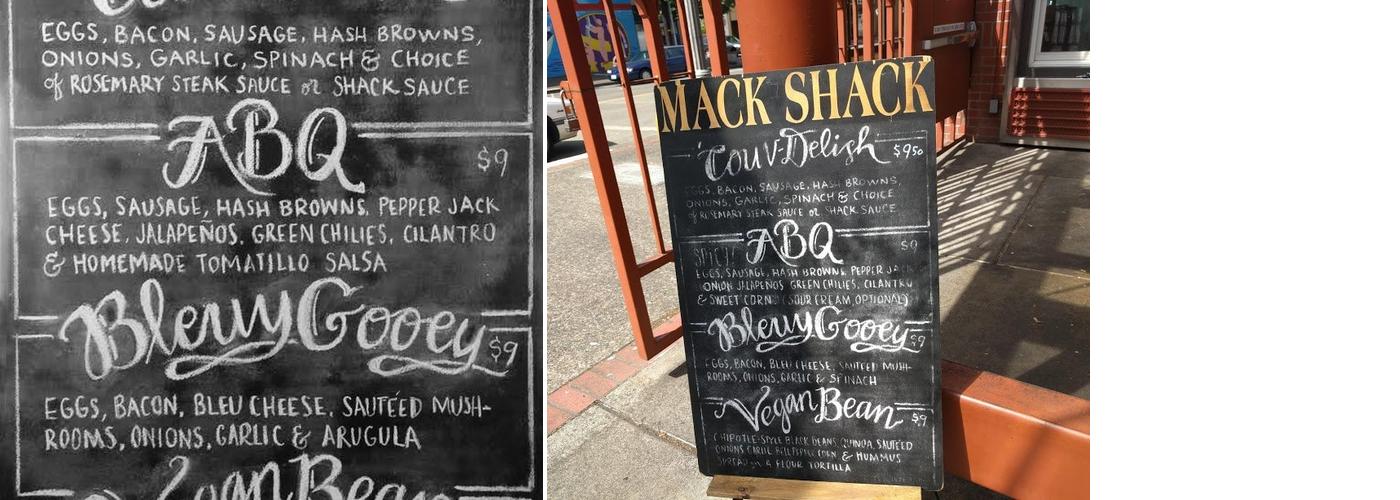 EGGS, BACON, SAUSAGE, HASH BROWNS,
ONIONS, GARLIC, SPINACH & CHOICE
of ROSEMARY STEAK SAUCE or SHACK SAUCE
ABQ
$9
EGGS, SAUSAGE, HASH BROWNS, PEPPER JACK
CHEESE, JALAPEÑOS, GREEN CHILIES, CILANTRO
& HOMEMADE TOMATILLO SALSA
BleuyGooey $9
EGGS, BACON, BLEU CHEESE, SAUTÉED MUSH-
ROOMS, ONIONS, GARLIC & ARUGULA
Vegan Bean
MACK SHACK
'Couv-Delish $9.50
EGGS, BACON, SAUSAGE, HASH BROWNS,
ONIONS, GARLIC, SPINACH & CHOICE
of ROSEMARY STEAK SAUCE or SHACK SAUCE
SPICY! ABQ $9
EGGS, SAUSAGE, HASH BROWNS, PEPPER JACK
ONION JALAPEÑOS GREEN CHILIES, CILANTRO
& SWEET CORN (SOUR CREAM, OPTIONAL)
BleuyGooey $9
EGGS, BACON, BLEU CHEESE, SAUTÉED MUSH-
ROOMS, ONIONS, GARLIC & SPINACH
Vegan Bean $9
CHIPOTLE-STYLE BLACK BEANS, QUINOA, SAUTÉED
ONIONS GARLIC BELL PEPPER CORN & HUMMUS
SPREAD on A FLOUR TORTILLA